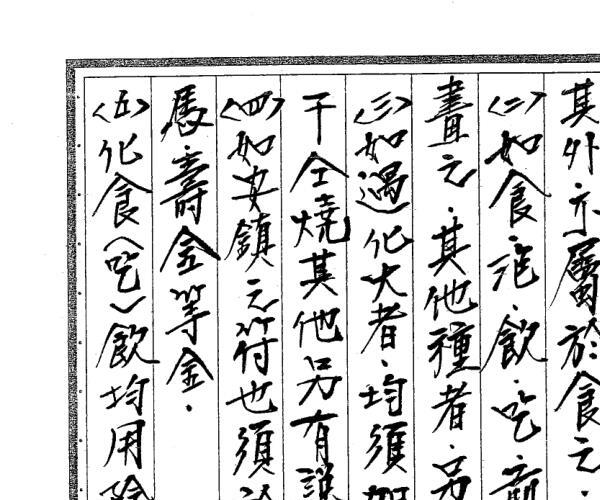 其外亦屬於食之.
〈二〉如食.泡.飲.吃.前
畫之.其他種者.另
〈三〉如遇化大者.均須加
干仝燒其他另有說
〈四〉如安鎮之符也須
馬.壽金等金.
〈五〉化食(吃)飲均用陰